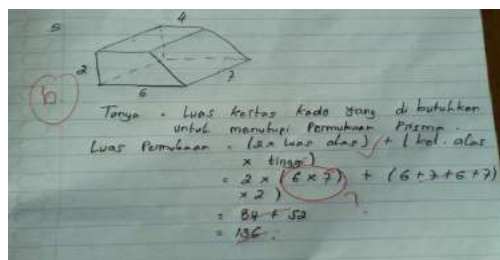 5
4
2
6
7
b.
Tanya . Luas kertas kado yang di butuhkan
untuk menutupi Permukaan Prisma .
Luas Permukaan = (2 x luas alas) + ( kel. alas
x tinggi )
= 2 x ( 6 x 7 ) + ( 6 + 7 + 6 + 7
x 2 )
= 84 + 52
= 136 .
?